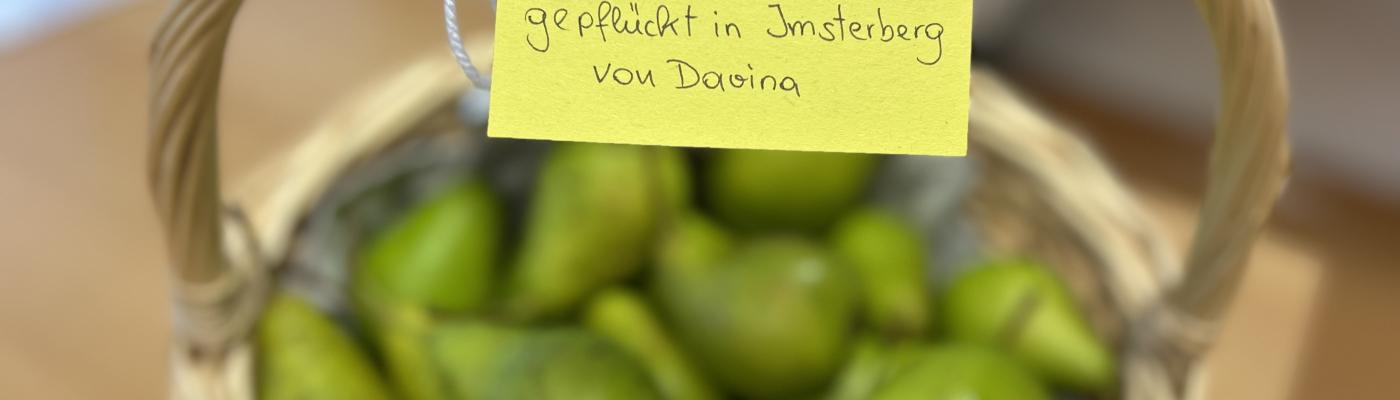 gepflückt in Imsterberg
von Davina